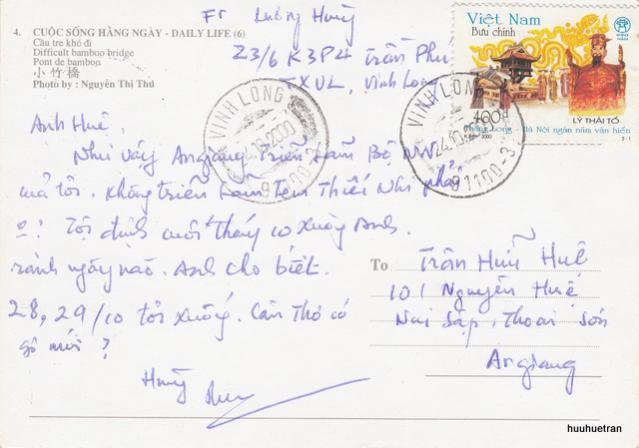 4. CUỘC SỐNG HÀNG NGÀY - DAILY LIFE (6)
Cầu tre khó đi
Difficult bamboo bridge
Pont de bambou
小竹橋
Photo by : Nguyễn Thị Thú
Fr Lương Hùng
Z3/6 K3P4 Trần Phú
TXVL, Vĩnh Long
Việt Nam
Bưu chính
400đ
LÝ THÁI TỔ
Thăng Long - Hà Nội ngàn năm văn hiến
VINH LONG
24.10.2000
91100-3
VINH LONG
24.10
91100-3
Anh Huệ,
Như vậy Angiang triển lãm Bộ
mà tôi. Không triển lãm Tem Thiếu Nhi phải
o? Tôi định cuối tháng 10 xuống Anh.
rảnh ngày nào. Anh cho biết.
28, 29/10 tôi xuống. Cần Thơ có
gì mới?
Hùng
To Trần Hữu Huệ
101 Nguyễn Huệ
Núi Sập, Thoại Sơn
An giang
huuhuetran